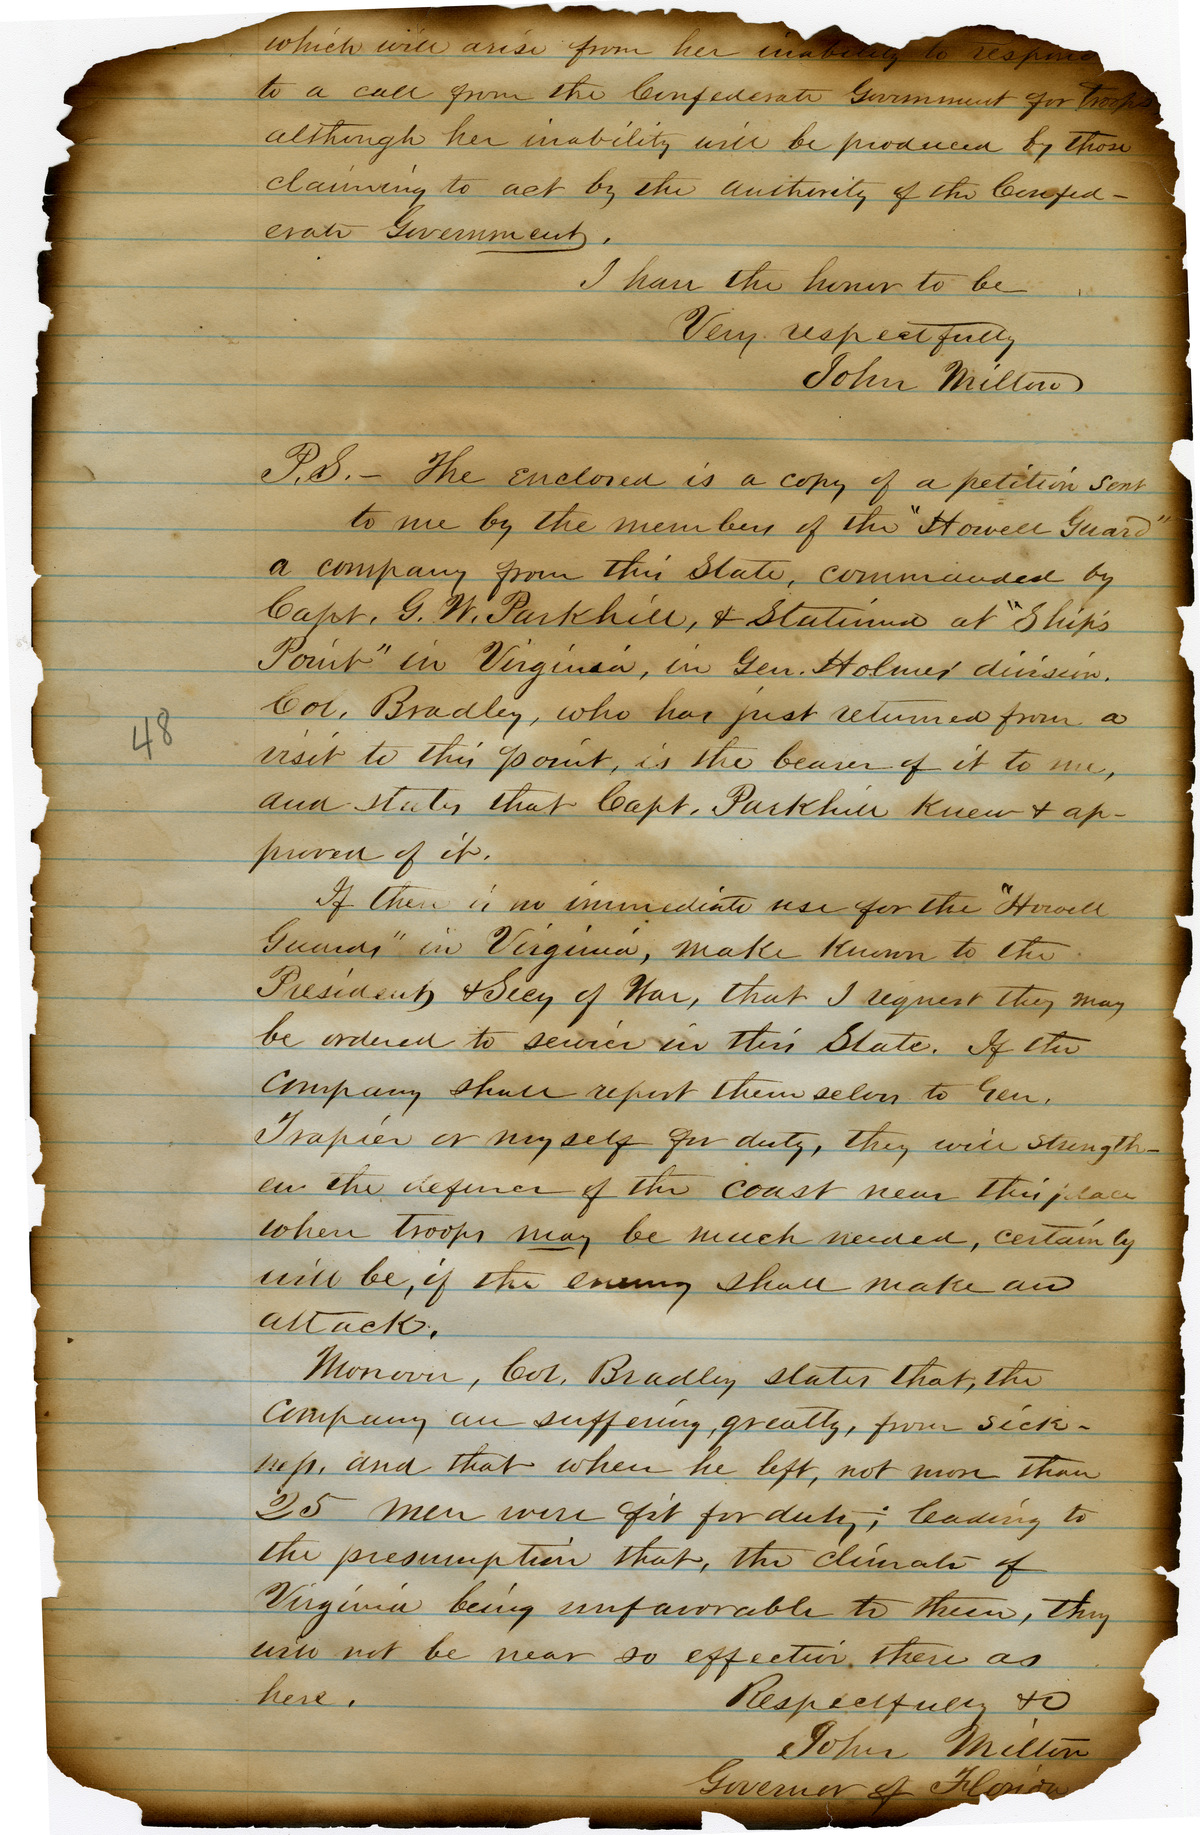 which will arise from her inability to respond
to a call from the Confederate Government for troops
although her inability will be produced by those
claiming to act by the authority of the Confed-
erate Government.
I have the honor to be
Very respectfully
John Milton
P.S. - The enclosed is a copy of a petition sent
to me by the members of the "Howell Guard"
a company from this State, commanded by
Capt. G. W. Parkhill, & stationed at "Ship's
Point" in Virginia, in Gen. Holmes' division.
Col. Bradley, who has just returned from a
visit to this point, is the bearer of it to me,
and states that Capt. Parkhill knew & ap-
proved of it.
48
If there is no immediate use for the "Howell
Guards" in Virginia, make known to the
President & Secy of War, that I request they may
be ordered to service in this State. If the
Company shall report themselves to Gen.
Trapier or myself for duty, they will strength-
en the defence of the coast near this place
where troops may be much needed, certainly
will be, if the enemy shall make an
attack.
Moreover, Col. Bradley states that, the
Company are suffering, greatly, from sick-
ness, and that when he left, not more than
25 men were fit for duty; leading to
the presumption that, the climate of
Virginia being unfavorable to them, they
will not be near so effective there as
here.
Respectfully &c
John Milton
Governor of Florida